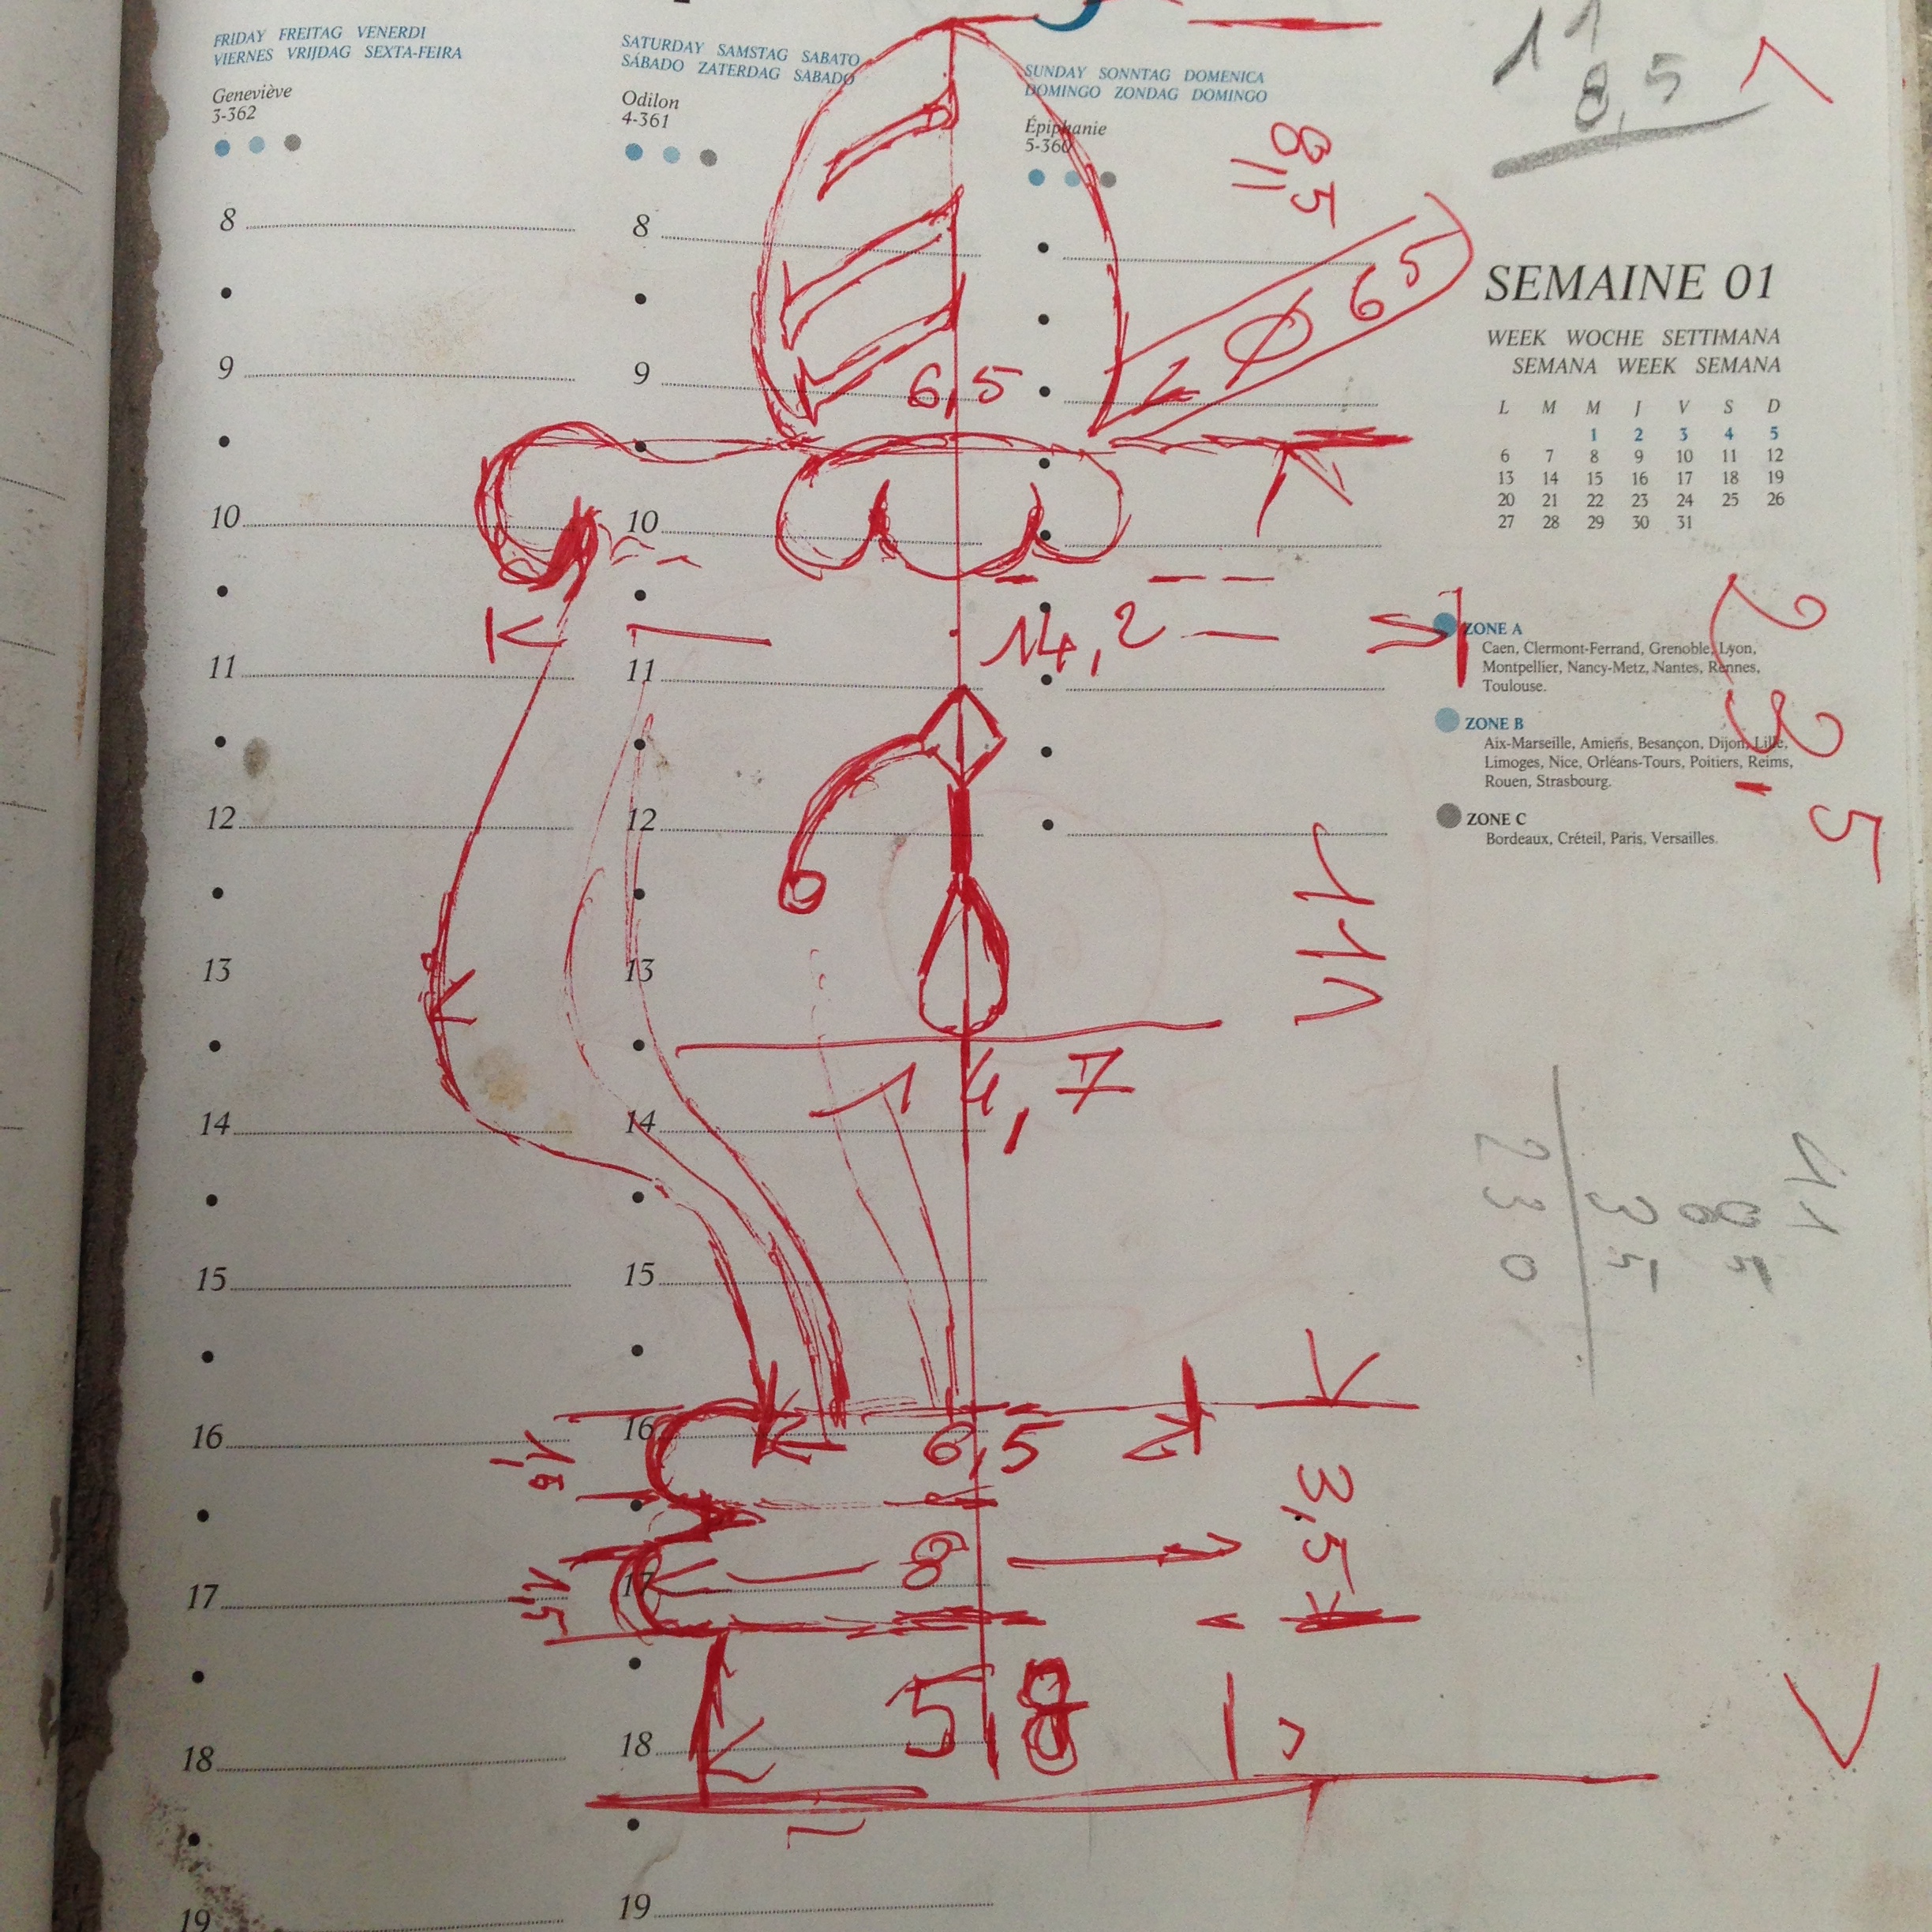 FRIDAY FREITAG VENERDI
VIERNES VRIJDAG SEXTA-FEIRA
Geneviève
3-362
8
9
10
11
12
13
14
15
16
17
18
19
SATURDAY SAMSTAG SABATO
SÁBADO ZATERDAG SÁBADO
Odilon
4-361
8
9
10
11
12
13
14
15
16
17
18
19
SUNDAY SONNTAG DOMENICA
DOMINGO ZONDAG DOMINGO
Épiphanie
5-360
11
8,5
8,5
Ø 65
6,5
14,2
11
14,7
6,5
1,5
3,5
8
1,5
5,8
23,5
11
8,5
3,5
23 0
SEMAINE 01
WEEK WOCHE SETTIMANA
SEMANA WEEK SEMANA
L M M J V S D
1 2 3 4 5
6 7 8 9 10 11 12
13 14 15 16 17 18 19
20 21 22 23 24 25 26
27 28 29 30 31
ZONE A
Caen, Clermont-Ferrand, Grenoble, Lyon,
Montpellier, Nancy-Metz, Nantes, Rennes,
Toulouse.
ZONE B
Aix-Marseille, Amiens, Besançon, Dijon, Lille,
Limoges, Nice, Orléans-Tours, Poitiers, Reims,
Rouen, Strasbourg.
ZONE C
Bordeaux, Créteil, Paris, Versailles.